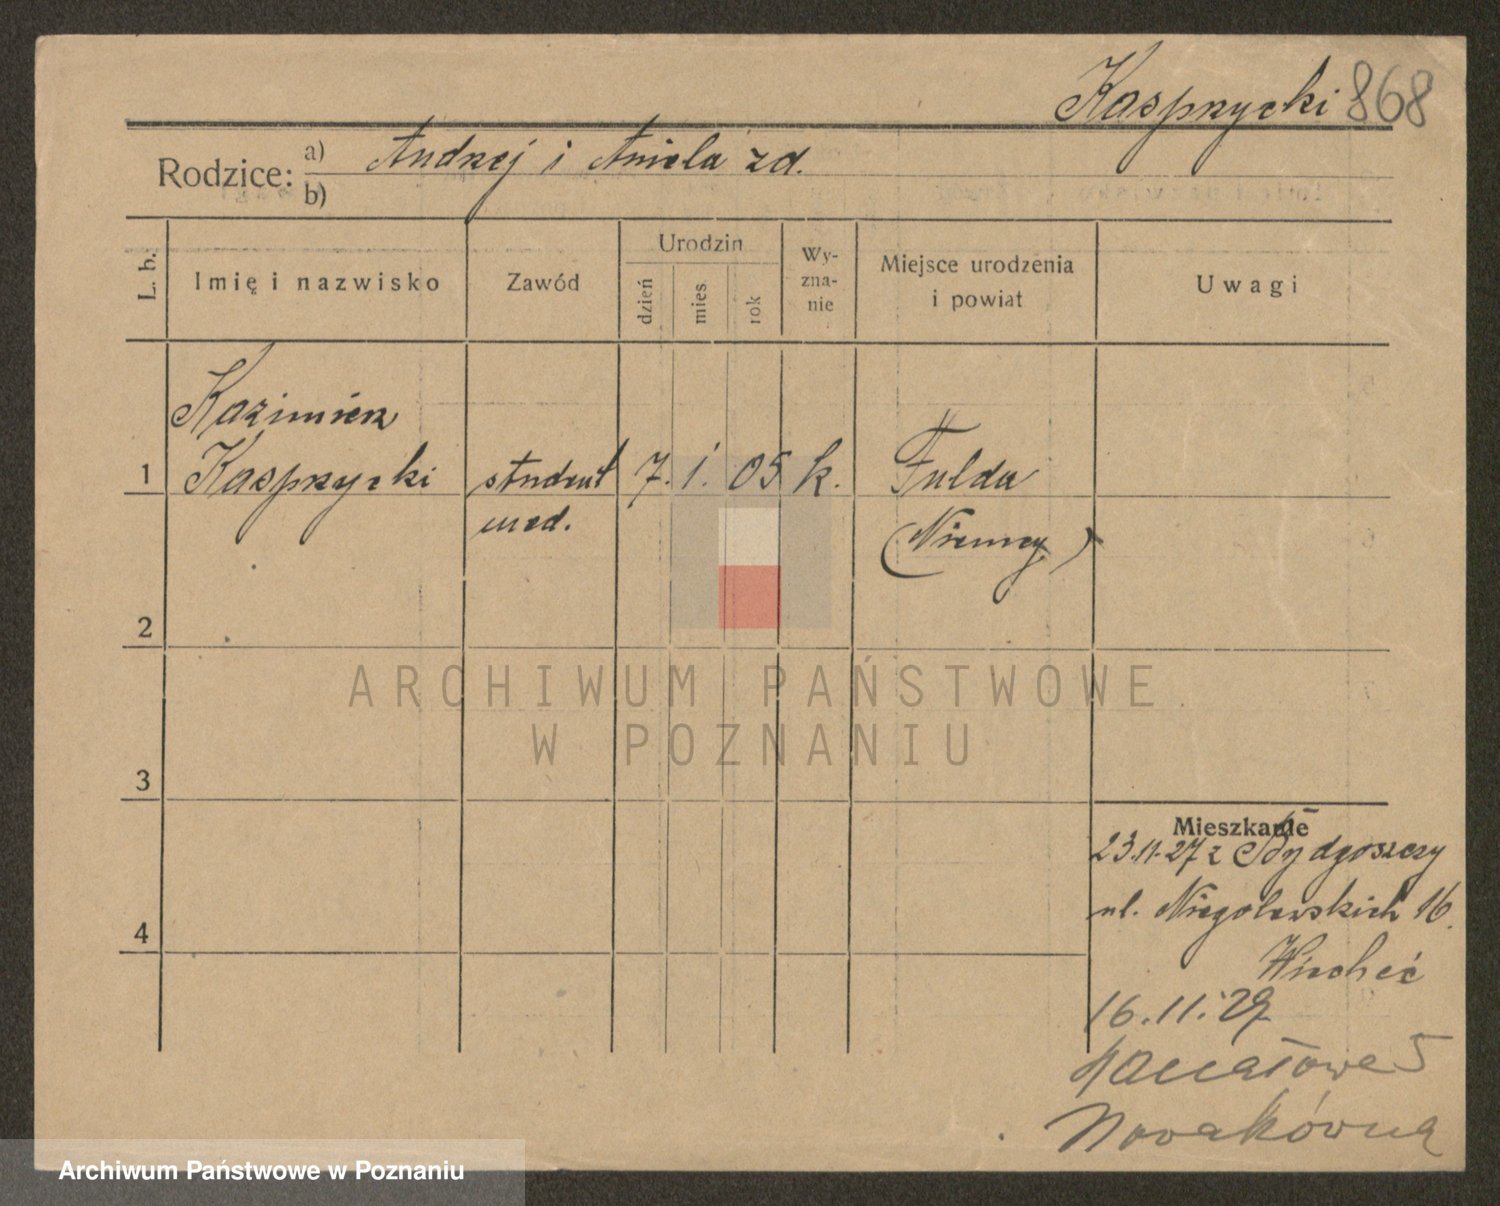 Kasprzycki 868
Rodzice: a) Andrzej i Aniela zd.
b)
L. b.
Imię i nazwisko
Zawód
Urodzin
dzień
mies
rok
Wy-
zna-
nie
Miejsce urodzenia
i powiat
Uwagi
Kazimierz
1 Kasprzycki student 7. 1. 05 k. Fulda
med. (Niemcy)
2
3
4
ARCHIWUM PAŃSTWOWE
W POZNANIU
Mieszkanie
23.11.27 z Bydgoszczy
ul. Niegolewskich 16.
Wiecheć
16.11.29
5
Nowakówna
Archiwum Państwowe w Poznaniu